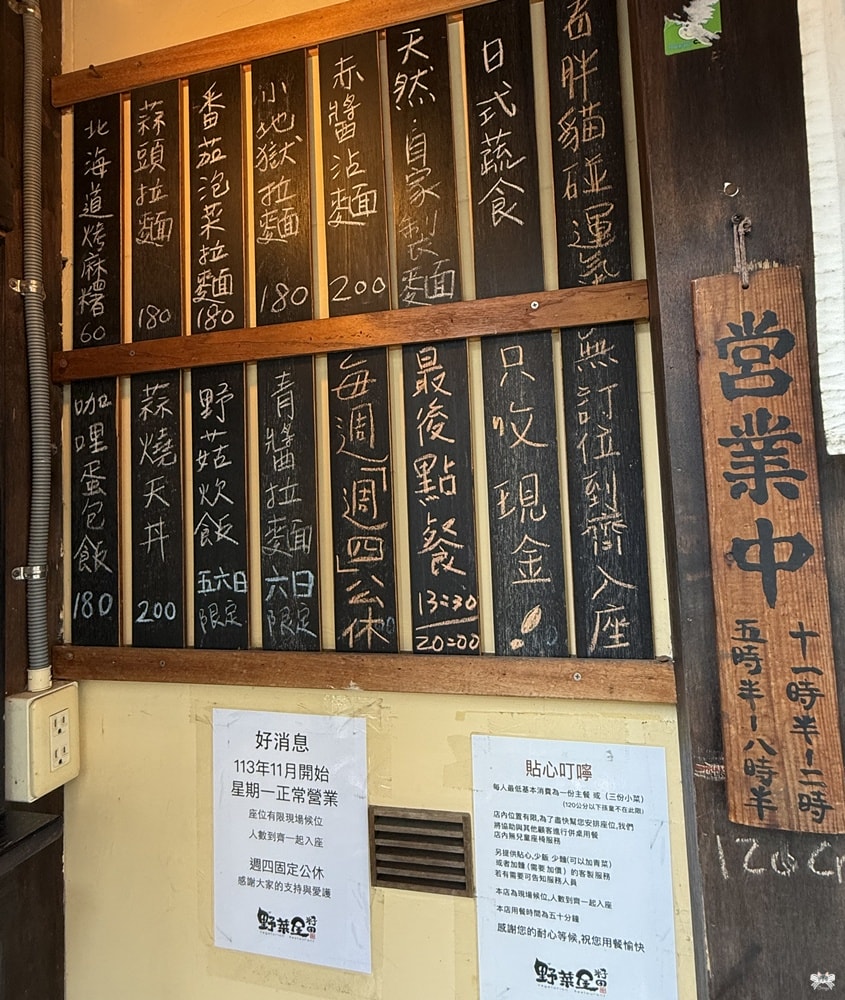 胖貓碰運氣
日式蔬食
天然.自家製麵
赤醬沾麵 200
小地獄拉麵 180
番茄泡菜拉麵 180
蒜頭拉麵 180
北海道烤麻糬 60
無訂位到齊入座
只收現金!
最後點餐 13:30 20:00
每週「週四」公休
青醬拉麵 六日限定
野菇炊飯 五六日限定
蒜燒天丼 200
咖哩蛋包飯 180
営業中
十一時半-二時
五時半-八時半
120c
好消息
113年11月開始
星期一正常營業
座位有限現場候位
人數到齊一起入座
週四固定公休
感謝大家的支持與愛護
野菜屋
貼心叮嚀
每人最低基本消費為一份主餐 或 (三份小菜)
(120公分以下孩童不在此限)
店內位置有限,為了盡快幫您安排座位,我們
將協助與其他顧客進行併桌用餐
店內無兒童座椅服務
另提供貼心,少飯 少麵(可以加青菜)
或者加麵(需要加價) 的客製服務
若有需要可告知服務人員
本店為現場候位,人數到齊一起入座
本店用餐時間為五十分鐘
感謝您的耐心等候,祝您用餐愉快
野菜屋